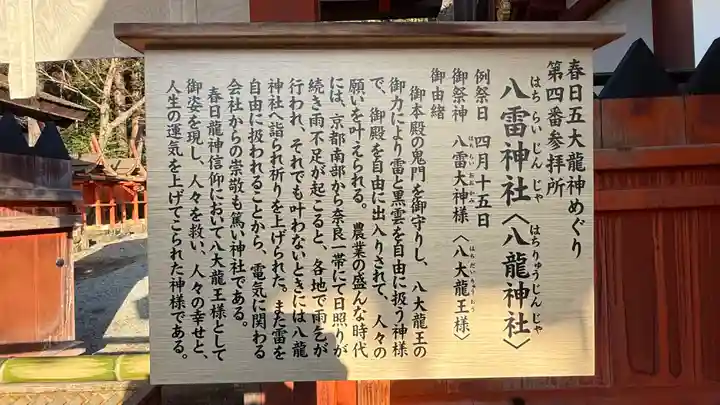 春日五大龍神めぐり
第四番参拝所
八雷神社〈八龍神社〉
はちらいじんじゃ
はちりゅうじんじゃ
例祭日 四月十五日
御祭神 八雷大神様〈八大龍王様〉
はちらいおおかみ
はちだいりゅうおう
御由緒
御本殿の鬼門を御守りし、八大龍王の
御力により雷と黒雲を自由に扱う神様
で、御殿を自由に出入りされて、人々の
願いを叶えられる。農業の盛んな時代
には、京都南部から奈良一帯にて日照りが
続き雨不足が起こると、各地で雨乞が
行われ、それでも叶わないときには八龍
神社へ詣られ祈りを上げられた。また雷を
自由に扱われることから、電気に関わる
会社からの崇敬も篤い神社である。
春日龍神信仰において八大龍王様として
御姿を現し、人々を救い、人々の幸せと、
人生の運気を上げてこられた神様である。